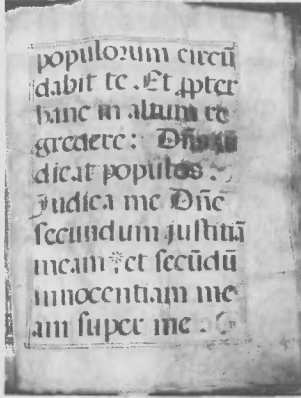 populorum circū
dabit te. Et ꝓpter
hanc in altum re
gredere: Dn̄s iu
dicat populos.
Judica me Dn̄e
secundum justitiā
meam: et secūdū
innocentiam me
am super me: